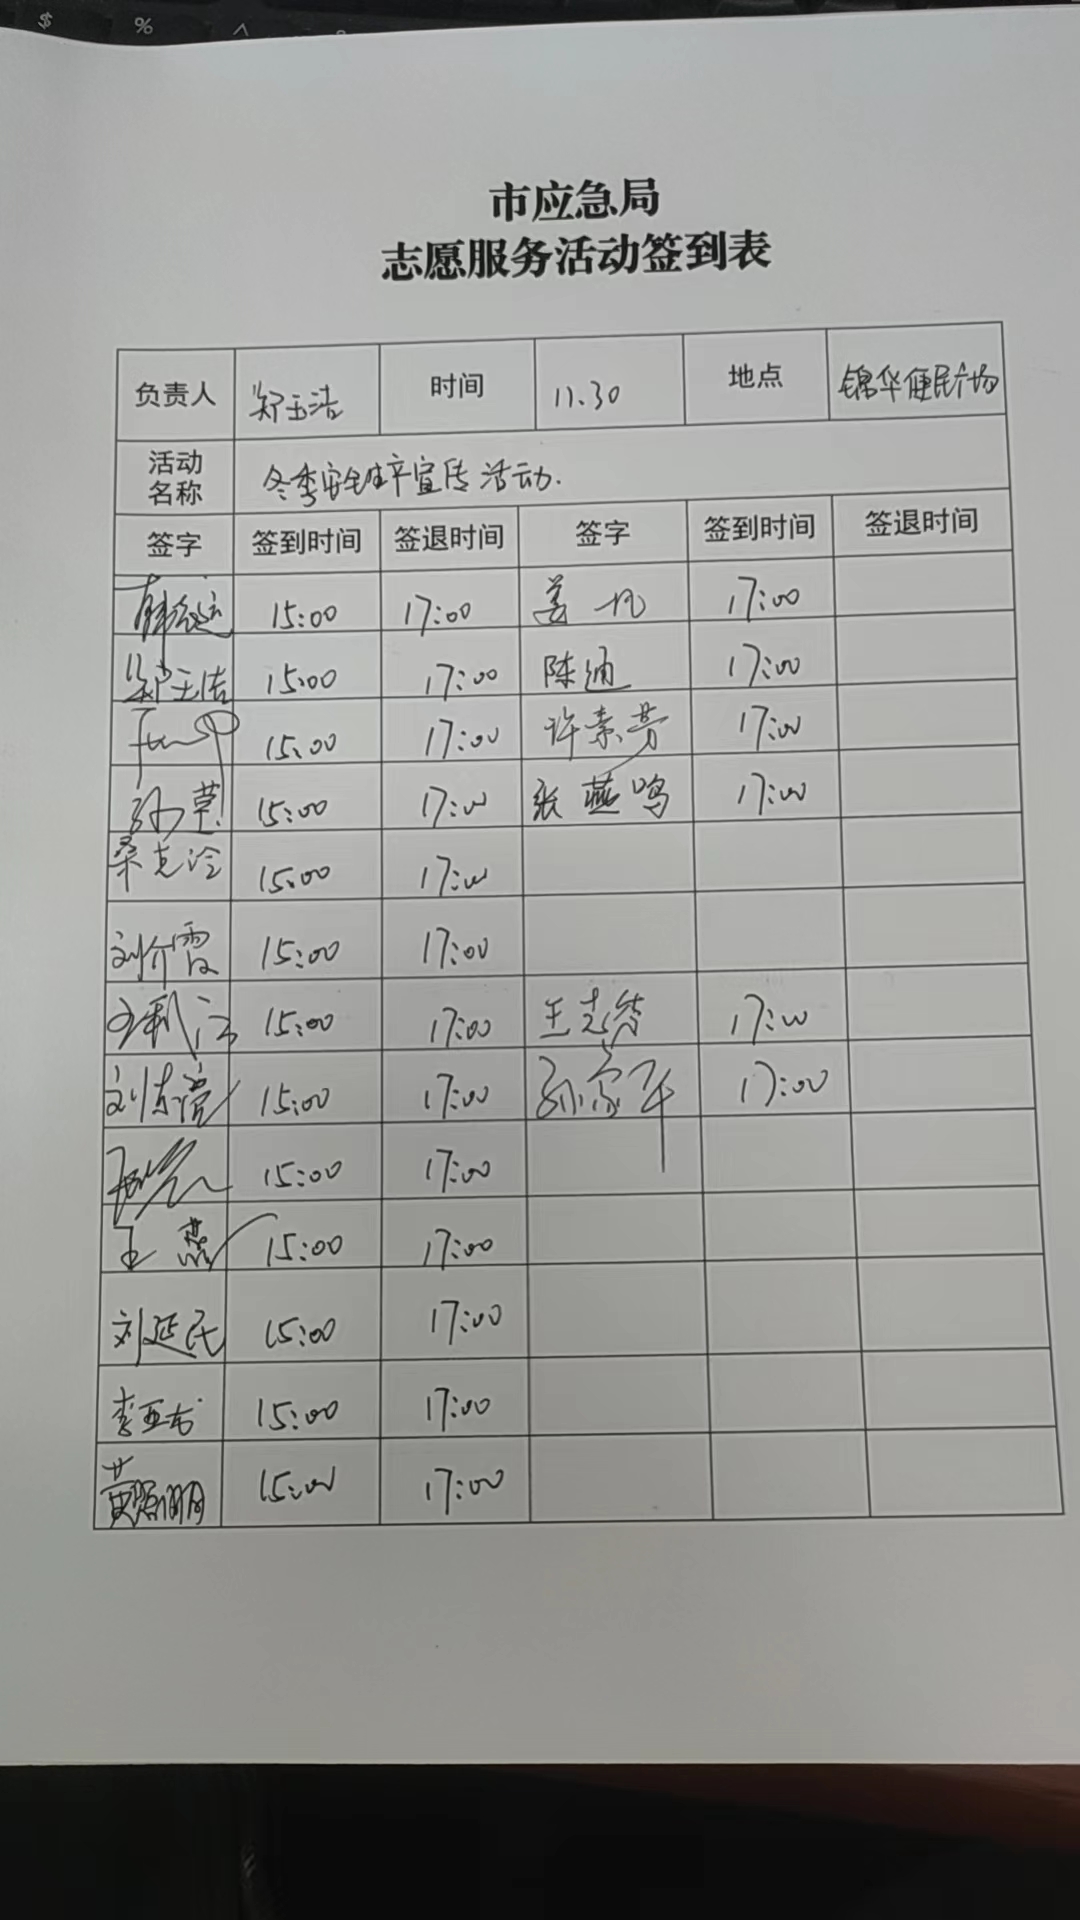 $ % ^
市应急局
志愿服务活动签到表
负责人 郑玉洁 时间 11.30 地点 锦华便民广场
活动名称 冬季安全生产宣传活动.
签字 签到时间 签退时间 签字 签到时间 签退时间
15:00 17:00 姜凡 17:00
郑玉洁 15:00 17:00 陈迪 17:00
15:00 17:00 许素芳 17:00
孙莫 15:00 17:00 张燕鸣 17:00
桑克冷 15:00 17:00
刘介霞 15:00 17:00
15:00 17:00 王志 17:00
刘东 15:00 17:00 孙家平 17:00
15:00 17:00
王燕 15:00 17:00
刘延民 15:00 17:00
李亚 15:00 17:00
黄 明 15:00 17:00